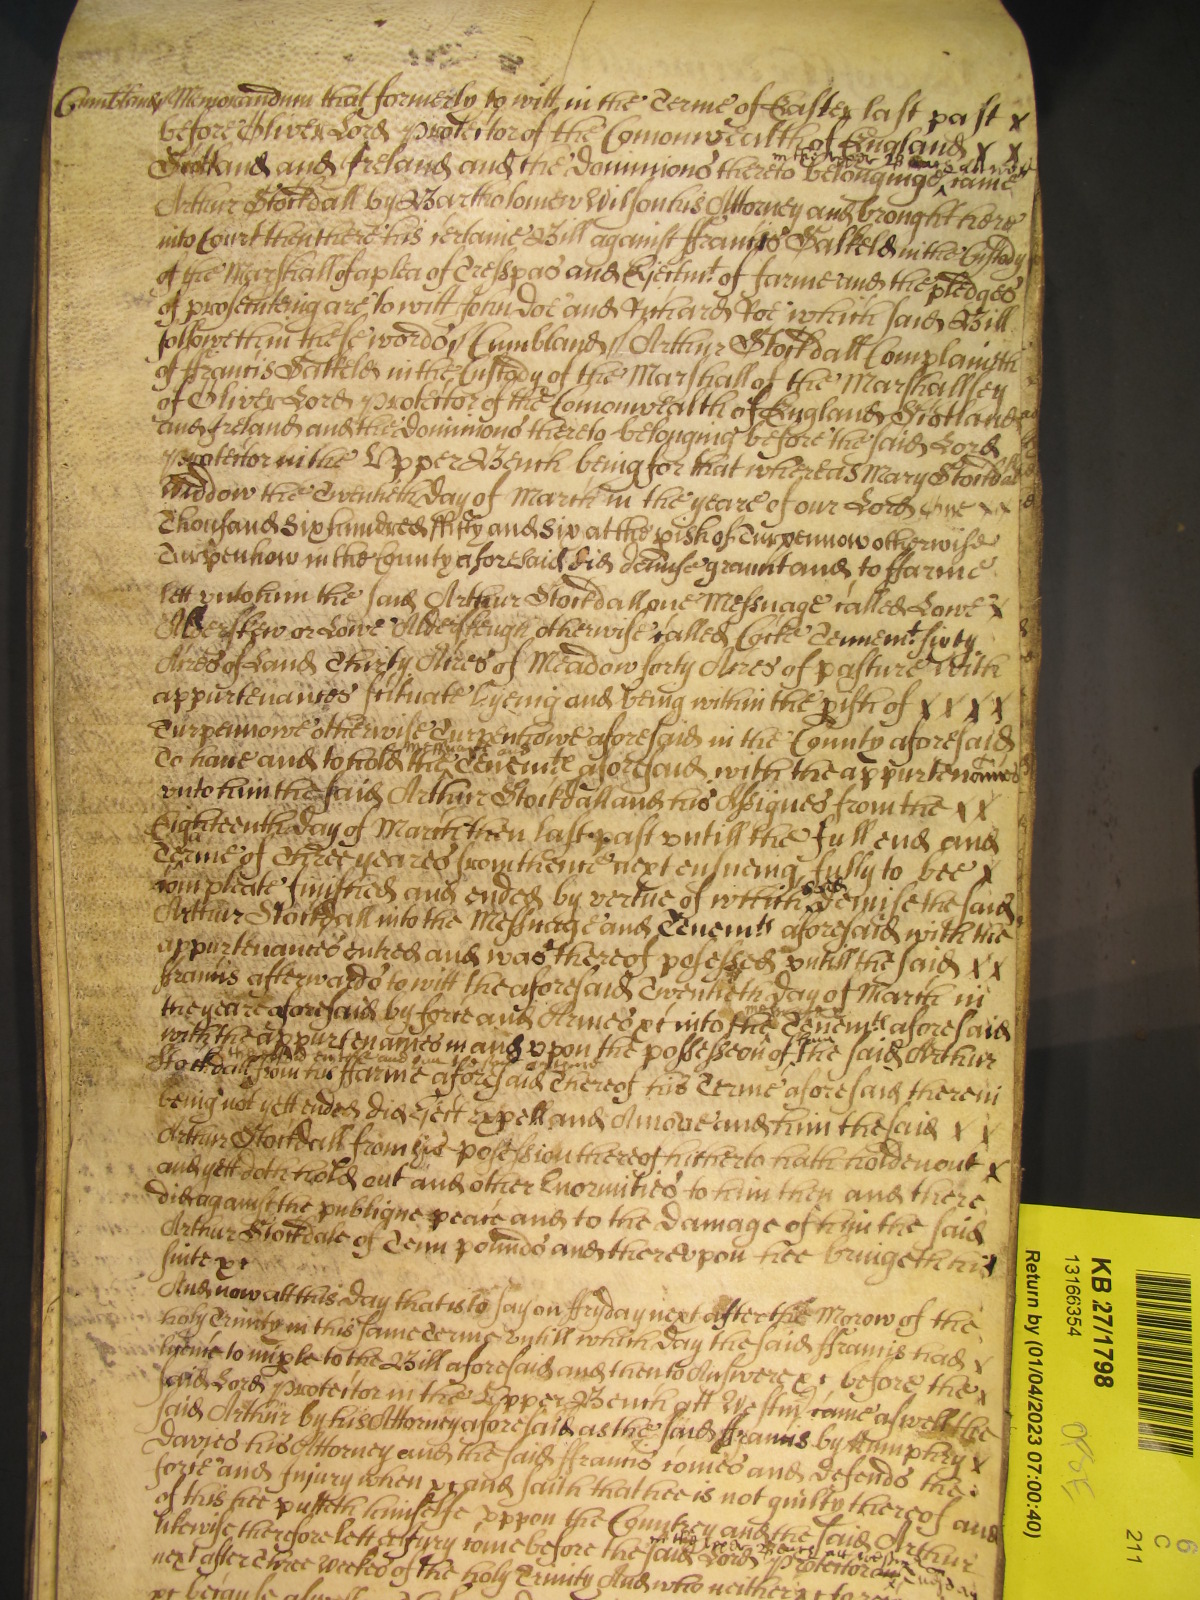 Cumbland// Memorandum that formerly to witt in the Terme of Easter last past x
before Oliver Lord Protector of the Comonwealth of England x x
Scotland and Ireland and the Dominions thereto belonginge in the upper Bench att Westm came
Arthur Stockdall by Bartholomew Wilson his Attorney and brought here
into Court then there his certaine Bill against ffrancis Salkeld in the Custody
of the Marshall of a plea of Trespas and Ejectmt of farme and the pledges
of prosecuteing are to witt John Doe and Richard Roe which said Bill
followeth in these words// Cumbland// Arthur Stockdall Complaineth
of ffrancis Salkeld in the Custody of the Marshall of the Marshallsey
of Oliver Lord Protector of the Comonwealth of England Scotland
and Ireland and the Dominions thereto belonging before the said Lord
Protector in the Upper Bench being for that whereas Mary Stockdall
Widdow the Twentieth Day of March in the yeare of our Lord One x x
Thousand six hundred ffifty and six at the pish of Turpennow otherwise
Turpenhow in the County aforesaid did demise graunt and to ffarme
lett unto him the said Arthur Stockdall one Messuage called Lowe x
Alderskew or Lowe Alderskeugh otherwise called Cocke Tennemt sixty
Acres of Land Thirty Acres of Meadow forty Acres of pasture with
appurtenances scituate lyeing and being within the pish of x x x x
Turpennowe otherwise Turpenhowe aforesaid in the County aforesaid
To have and to hold the messuage and Tenemts aforesaid with the appurtenances
unto him the said Arthur Stockdall and his Assignes from the x x
Eighteenth Day of March then last past untill the full end and
Terme of Three yeares from thence next ensueing fully to bee x
compleate finished and ended by vertue of which said demise the said
Arthur Stockdall into the Messuage and Tenemts aforesaid with the
appurtenances entred and was thereof possessed untill the said x x
ffrancis afterwards to witt the aforesaid Twentieth Day of March in
the yeare aforesaid by force and Armes &c into the messuage & Tenemts aforesaid
with the appurtenances in and upon the possession of him the said Arthur
Stockdall did enter and from his ffarme aforesaid Thereof his Terme aforesaid therein
being not yett ended did eject expell and Amove and him the said x x
Arthur Stockdall from his possession thereof hitherto hath holden out x
and yett doth hold out and other Enormities to him then and there
did against the publique peace and to the Damage of him the said
Arthur Stockdale of Tenn pounds and thereupon hee bringeth his
suite &c
And now att this day that is to say on ffryday next after the Morow of the
holy Trinity in this same Terme untill which day the said ffrancis had x
lycence to imple to the Bill aforesaid and then to Answere &c before the x
said Lord Protector in the Upper Bench att Westm came aswell the
said Arthur by his Attorney aforesaid as the said ffrancis by Humphry x
Davies his Attorney and the said ffrancis comes and defends the
force and Injury when &c and saith that hee is not guilty thereof and
of this hee putteth himselfe uppon the Countrey and the said Arthur
likewise therefore lett a Jury come before the said Lord Protector in the upper Bench att Westm on
next after Three Weekes of the holy Trinity And who neither &c to
&c because aswell
KB 27/1798
13166354
Return by (01/04/2023 07:00:40)
6
C
211